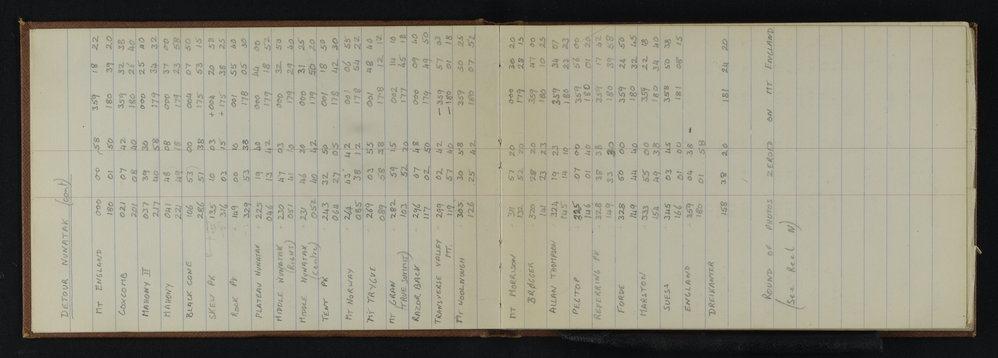 DETOUR NUNATAK (cont)
MT ENGLAND 000 00 58 359 18 22
180 01 50 180 39 20
COXCOMB 021 07 42 359 32 38
201 08 40 180 26 40
MAHONY II 037 39 30 000 25 40
217 40 58 179 34 32
MAHONY 041 48 08 000 37 00
221 49 18 179 23 58
BLACK CONE 106 53 00 004 07 50
286 51 38 175 53 15
SKEW PK 135 10 03 +004 20 58
316 03 15 +175 38 25
ROCK PD 149 00 10 001 55 30
329 53 38 178 05 30
PLATEAU NUNATAK 225 19 40 000 44 00
046 13 42 179 18 52
MIDDLE NUNATAK 230 47 03 000 32 30
(RIGHT) 051 41 10 179 29 40
MIDDLE NUNATAK 231 46 30 000 31 25
(centre) 052 40 42 179 30 20
TENT PK 243 32 50 001 18 50
064 27 05 178 42 30
MT NORWAY 264 43 42 001 06 55
085 38 12 178 54 22
MT TRYGVE 269 03 55 001 48 40
089 58 38 178 12 12
MT GRAN 282 59 45 002 14 10
(TRUE SUMMIT) 102 52 30 177 45 18
RAZOR BACK 296 07 48 000 09 40
117 02 50 179 49 50
TRANSVERSE VALLEY 299 02 42 -359 57 02
MT. 119 57 40 -180 01 18
MT WOOLNOUGH 305 30 58 359 50 35
126 25 42 180 07 52
MT MORRISON 311 57 20 000 30 20
132 52 20 179 28 15
BRØGGER 320 28 20 359 47 00
141 23 23 180 10 25
ALLAN THOMPSON 324 19 23 359 34 07
145 14 10 180 23 23
PECTOP 325 07 00 359 58 00
146 01 40 180 01 20
REFERRING PK 328 38 38 359 17 42
149 33 30 180 39 58
FORDE 328 50 00 359 24 50
149 44 40 180 32 45
MARSTON 333 55 00 359 22 18
154 49 38 180 34 40
SUESS 345 03 45 358 50 38
166 01 00 181 08 15
ENGLAND 359 04 38
180 01 58
DREIKANTER 158 38 20 181 24 20
ROUND OF PHOTOS ZEROED ON MT ENGLAND
(See Reel N)